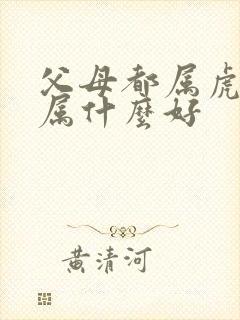 父母都属虎
属什麼好
黄清河